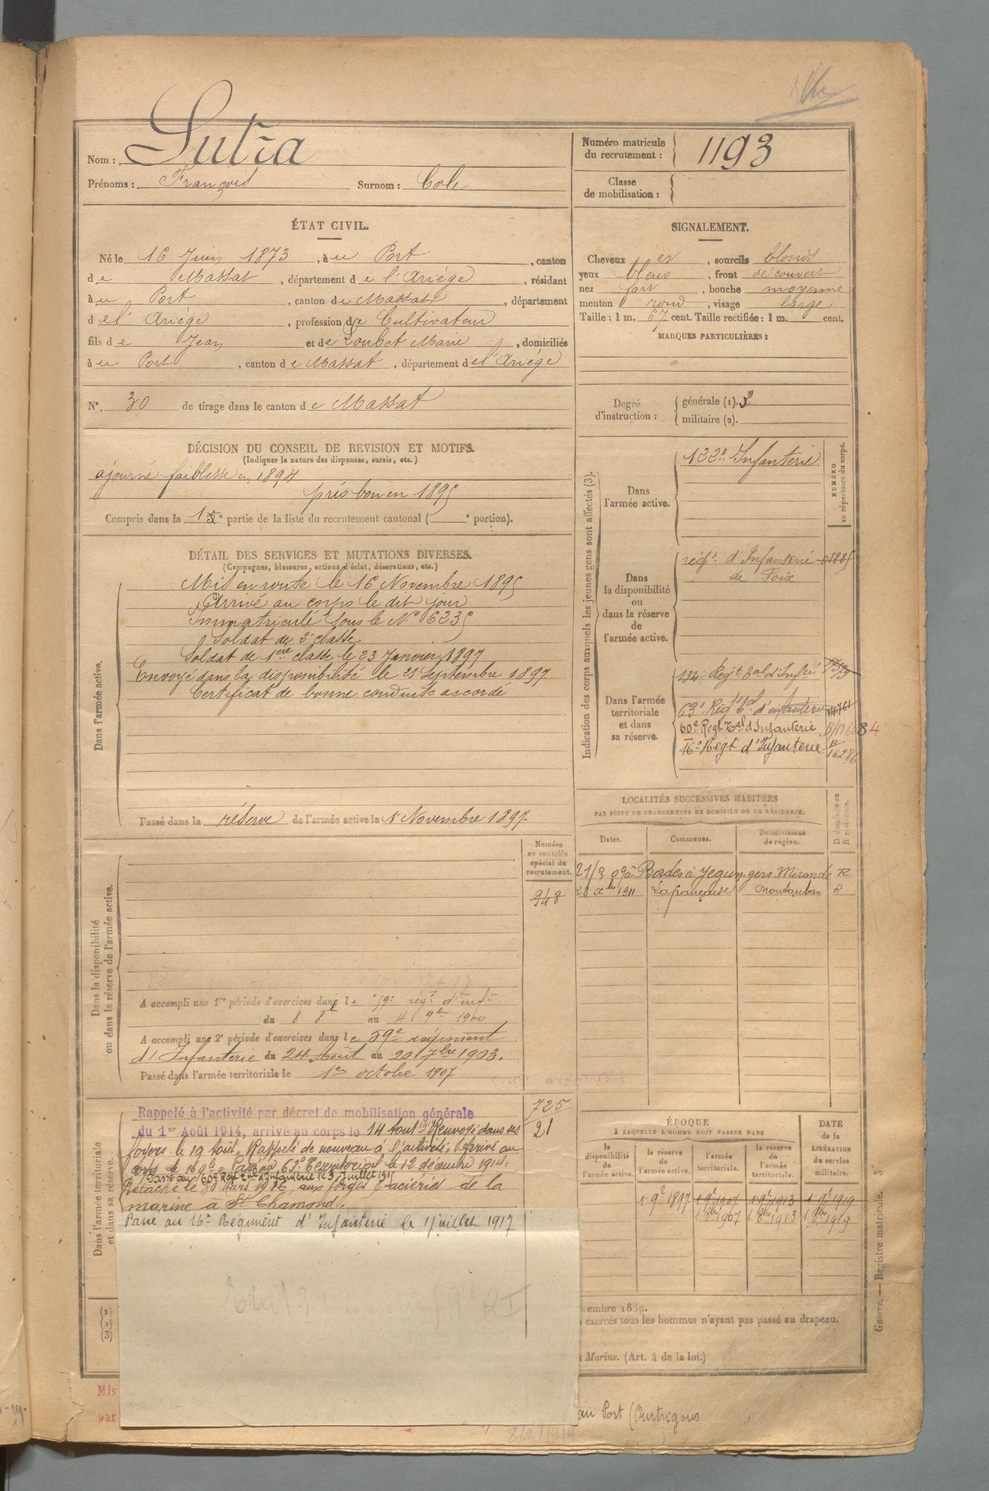 Nom : Sutra
Prénoms : François Surnom :
Numéro matricule du recrutement : 1193
Classe de mobilisation :
ÉTAT CIVIL.
Né le 16 Juin 1873, à u Port, canton
de Massat, département de l'Ariége, résidant
à u Port, canton de Massat, département
de l'Ariége, profession de Cultivateur
fils de Jean et de Loubet Marie, domiciliés
à u Port, canton de Massat, département de l'Ariége
N° 30 de tirage dans le canton de Massat
SIGNALEMENT.
Cheveux et, sourcils blonds
yeux bleus, front découvert
nez fort, bouche moyenne
menton rond, visage large
Taille : 1 m. 67 cent. Taille rectifiée : 1 m. cent.
MARQUES PARTICULIÈRES :
Degré d'instruction : générale (1). 3
militaire (2).
DÉCISION DU CONSEIL DE REVISION ET MOTIFS.
(Indiquer la nature des dispenses, sursis, etc.)
ajourné faiblesse en 1894
pris bon en 1895
Compris dans la 1 e partie de la liste du recrutement cantonal ( e portion).
DÉTAIL DES SERVICES ET MUTATIONS DIVERSES.
(Campagnes, blessures, actions d'éclat, décorations, etc.)
Dans l'armée active.
Mis en route le 16 Novembre 1895
Arrivé au corps le dit jour
Immatriculé sous le N° 6235
Soldat de 2e classe
Soldat de 1ère classe le 23 Janvier 1897
Envoyé dans la disponibilité le 25 Septembre 1897
Certificat de bonne conduite accordé
Passé dans la réserve de l'armée active le 1 Novembre 1897
Indication des corps auxquels les jeunes gens sont affectés (3).
NUMÉRO au répertoire du corps.
Dans l'armée active.
122e Infanterie
Dans la disponibilité ou dans la réserve de l'armée active.
régt. d'Infanterie
de Foix
Dans l'armée territoriale et dans sa réserve.
134 Régt Eal d'Infie
63e Régt d'infanterie
60e Régt Tal d'Infanterie
16e Régt d'Infanterie
LOCALITÉS SUCCESSIVES HABITÉES
PAR SUITE DE CHANGEMENTS DE DOMICILE OU DE RÉSIDENCE.
Dates. Communes. Subdivisions de région.
Jegun gers Mirande R
1911 Lafrançaise Montauban R
Numéro au contrôle spécial du recrutement.
948
Dans la disponibilité ou dans la réserve de l'armée active.
A accompli une 1re période d'exercices dans le
A accompli une 2e période d'exercices dans le 59e régiment
d'Infanterie du 24 Août au 20 7bre 1903.
Passé dans l'armée territoriale le 1er octobre 1907
725
21
Dans l'armée territoriale et dans sa réserve.
Rappelé à l'activité par décret de mobilisation générale
du 1er Août 1914, arrivé au corps le 14 Aout 1914 Renvoyé dans ses
foyers le 19 Aout, Rappelé de nouveau à l'activité, Arrivé au
Détaché le 30 Mars 1916 aux forges & acieries de la
marine à St Chamond.
Passé au 16e Régiment d'Infanterie le 1 juillet 1917
ÉPOQUE
À LAQUELLE L'HOMME DOIT PASSER DANS
la disponibilité de l'armée active. la réserve de l'armée active. l'armée territoriale. la réserve de l'armée territoriale.
DATE de la LIBÉRATION du service militaire.
1 9e 1897
(1)
(2)
(3)
exercés tous les hommes n'ayant pas passé au drapeau.
Marine. (Art. 4 de la loi.)
Guerre. — Registre matricule. 3
au Port